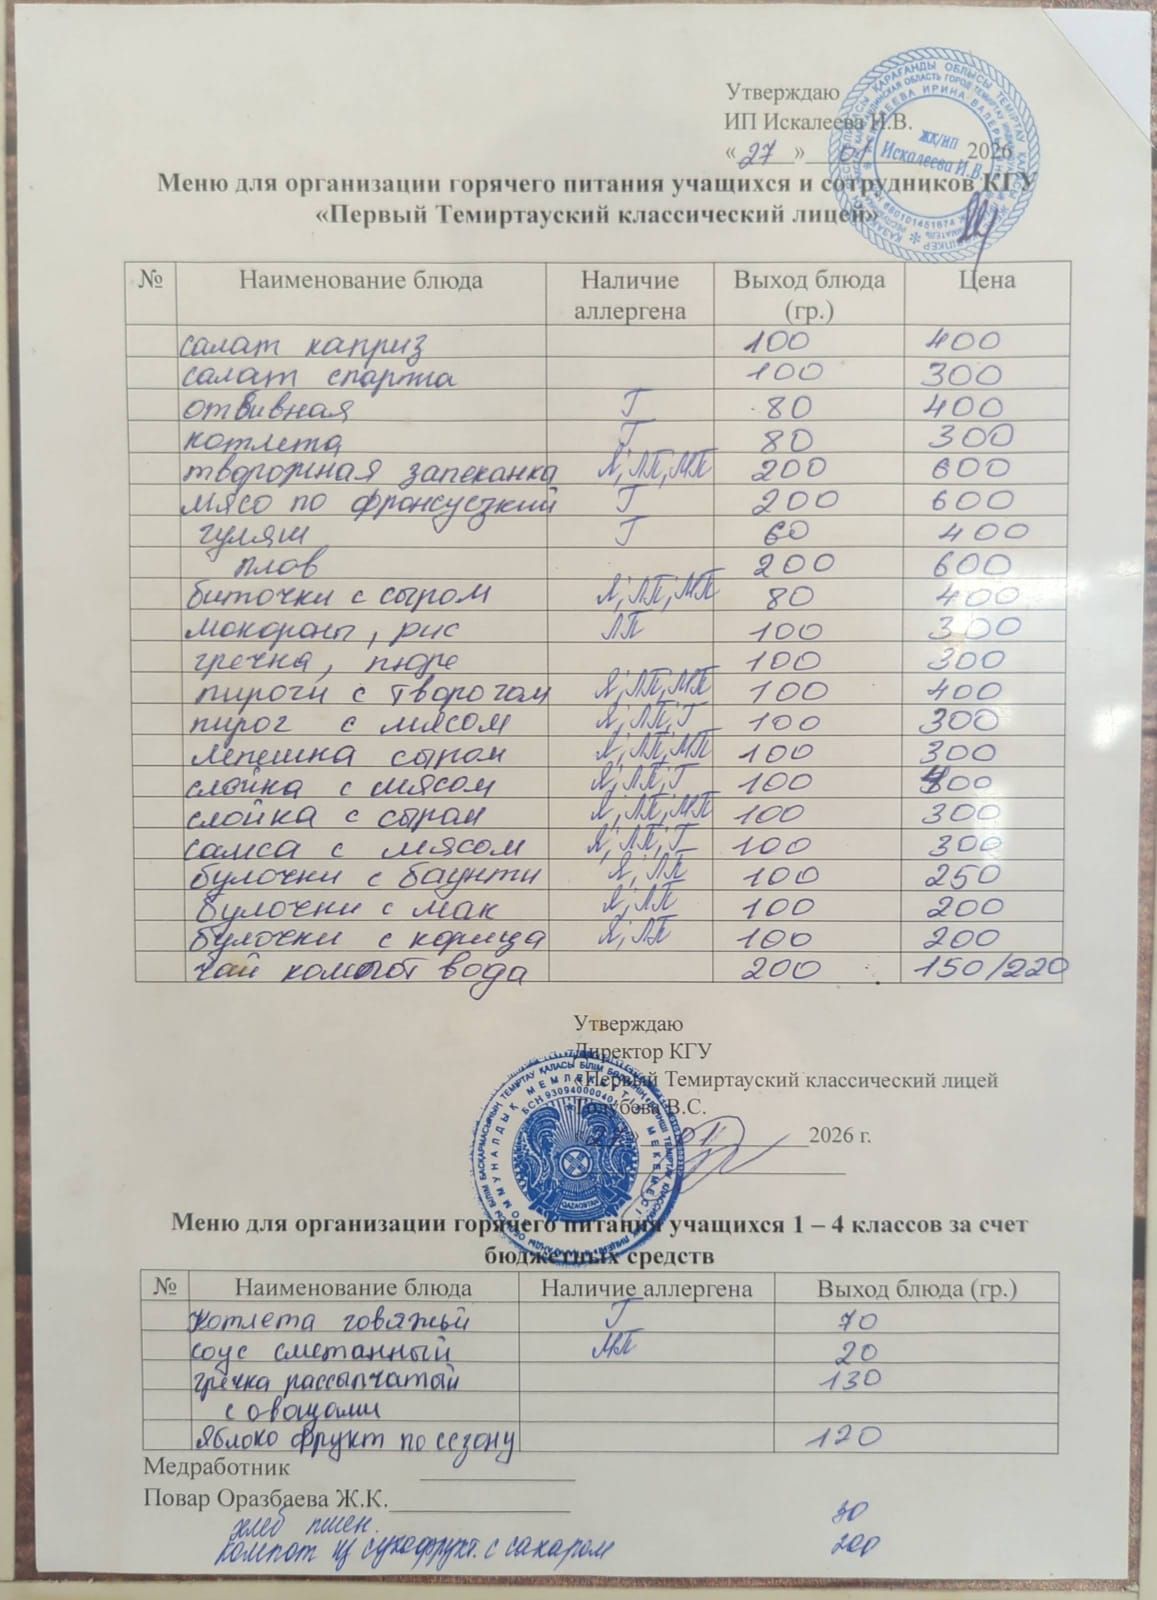 Утверждаю
ИП Искалеева И.В.
«27» 01 2026
ЖК/ИП
Искалеева И.В.
Меню для организации горячего питания учащихся и сотрудников КГУ
«Первый Темиртауский классический лицей»
№ Наименование блюда Наличие аллергена Выход блюда (гр.) Цена
салат каприз 100 400
салат спаржа 100 300
отбивная Г 80 400
котлета Г 80 300
творожная запеканка Я; ЛП; МП 200 600
мясо по французкий Г 200 600
гуляш Г 60 400
плов 200 600
биточки с сыром Я; ЛП; МП 80 400
мокороны, рис ЛП 100 300
гречка, пюре 100 300
пироги с творогом Я; ЛП; МП 100 400
пирог с мясом Я; ЛП; Г 100 300
лепешка сыром Я; ЛП; МП 100 300
слойка с мясом Я; ЛП; Г 100 400
слойка с сыром Я; ЛП; МП 100 300
самса с мясом Я; ЛП; Г 100 300
булочки с баунти Я; ЛП 100 250
булочки с мак Я; ЛП 100 200
булочки с корица Я; ЛП 100 200
чай компот вода 200 150/220
Утверждаю
Директор КГУ
«Первый Темиртауский классический лицей
Голубова В.С.
«27» 01 2026 г.
QAZAQSTAN
Меню для организации горячего питания учащихся 1 – 4 классов за счет
бюджетных средств
№ Наименование блюда Наличие аллергена Выход блюда (гр.)
котлета говяжьи Г 70
соус сметанный МП 20
гречка рассыпчатый 130
с овощами
яблоко фрукт по сезону 120
Медработник
Повар Оразбаева Ж.К.
хлеб пшен. 30
компот из сухофрукт. с сахаром 200